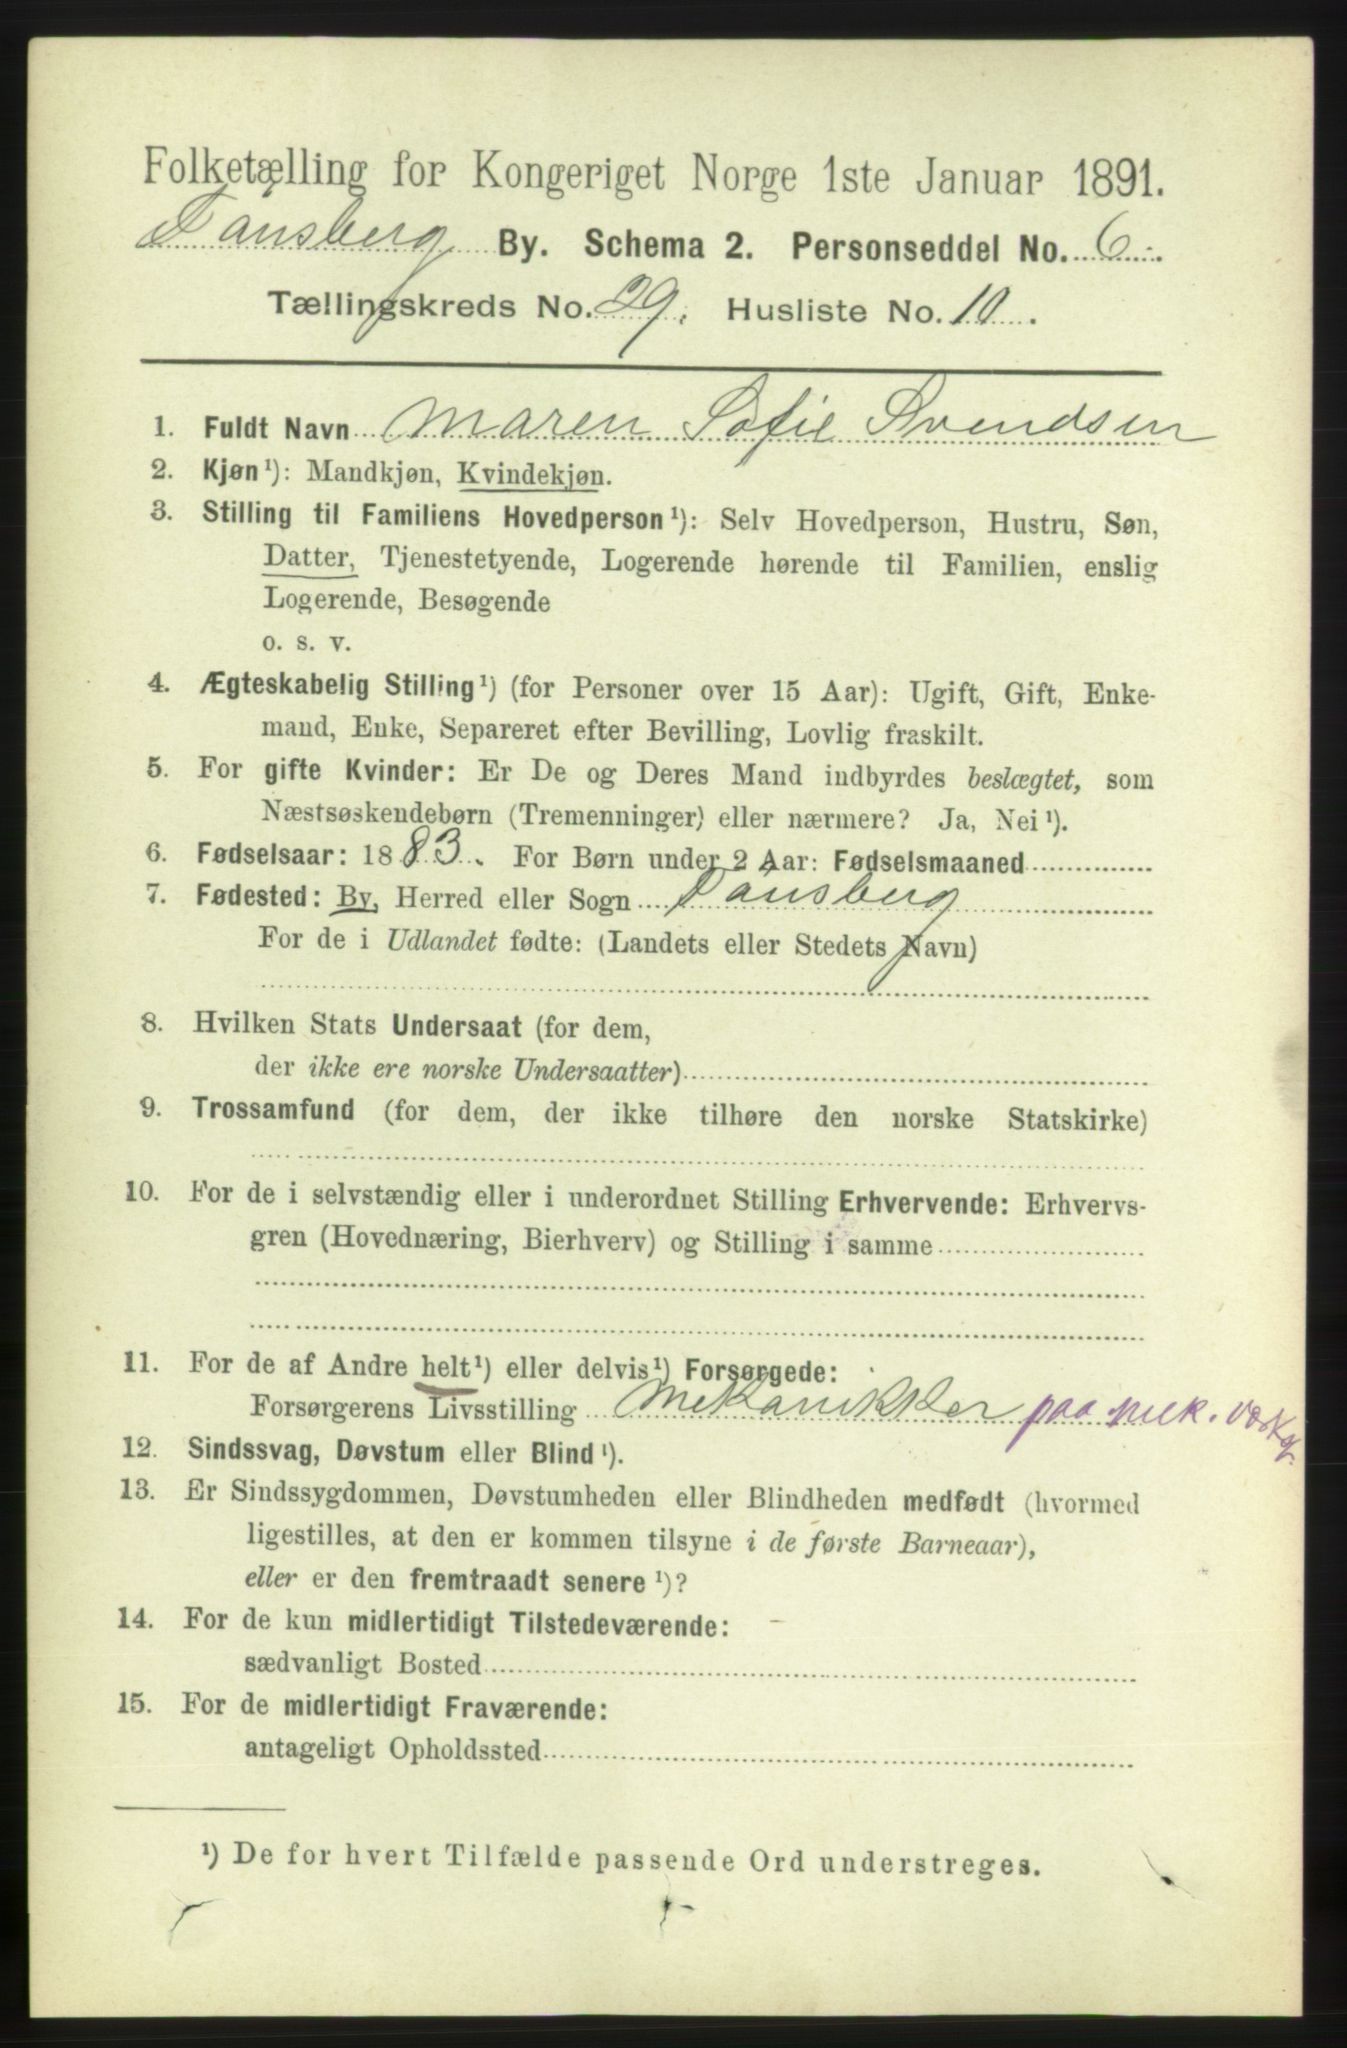 Folketælling for Kongeriget Norge 1ste Januar 1891.
Tønsberg By. Schema 2. Personseddel No. 6.
Tællingskreds No. 29. Husliste No. 10.
1. Fuldt Navn Maren Sofie Svendsen
2. Kjøn¹): Mandkjøn, Kvindekjøn.
3. Stilling til Familiens Hovedperson¹): Selv Hovedperson, Hustru, Søn,
Datter, Tjenestetyende, Logerende hørende til Familien, enslig
Logerende, Besøgende
o. s. v.
4. Ægteskabelig Stilling¹) (for Personer over 15 Aar): Ugift, Gift, Enke-
mand, Enke, Separeret efter Bevilling, Lovlig fraskilt.
5. For gifte Kvinder: Er De og Deres Mand indbyrdes beslægtet, som
Næstsøskendebørn (Tremenninger) eller nærmere? Ja, Nei¹).
6. Fødselsaar: 1883. For Børn under 2 Aar: Fødselsmaaned
7. Fødested: By, Herred eller Sogn Tønsberg
For de i Udlandet fødte: (Landets eller Stedets Navn)
8. Hvilken Stats Undersaat (for dem,
der ikke ere norske Undersaatter)
9. Trossamfund (for dem, der ikke tilhøre den norske Statskirke)
10. For de i selvstændig eller i underordnet Stilling Erhvervende: Erhvervs-
gren (Hovednæring, Bierhverv) og Stilling i samme
11. For de af Andre helt¹) eller delvis¹) Forsørgede:
Forsørgerens Livsstilling Mekanikker paa mek. Værkst.
12. Sindssvag, Døvstum eller Blind¹).
13. Er Sindssygdommen, Døvstumheden eller Blindheden medfødt (hvormed
ligestilles, at den er kommen tilsyne i de første Barneaar),
eller er den fremtraadt senere¹)?
14. For de kun midlertidigt Tilstedeværende:
sædvanligt Bosted
15. For de midlertidigt Fraværende:
antageligt Opholdssted
¹) De for hvert Tilfælde passende Ord understreges.